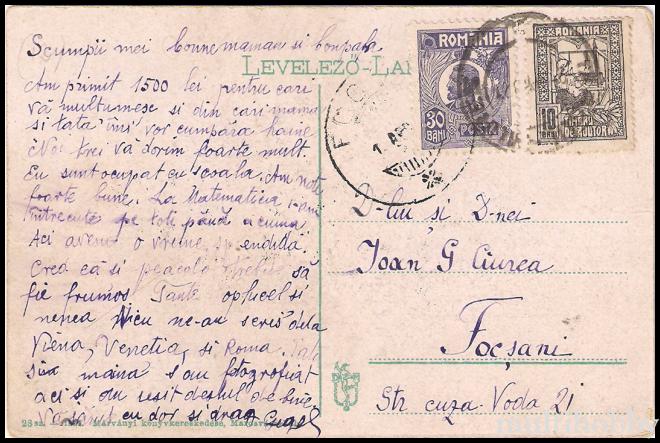 Scumpii mei bonnemaman si bonpapa
LEVELEZŐ-LAP
Am primit 1500 lei pentru cari
vă multumesc si din cari mama
si tata îmi vor cumpăra haine
Noi trei vă dorim foarte mult.
Eu sunt ocupat cu scoala. Am note
foarte bune. La Matematica i-am
întrecut pe toti până acuma
Aci avem o vreme splendidă
Cred că si pe acolo trebue să
fie frumos Tante si
nenea Nicu ne-au scris dela
Viena, Venetia, si Roma.
fotografiat
aci si au esit destul de bine
Vă sărut cu dor si drag
ROMÂNIA
30 BANI
POSTA
ROMANIA
10 BANI
TIMBRU DE AJUTOR
FOCȘANI
1. APR
D-lui și D-nei
Ioan G Ciurea
Focșani
Str cuza Voda 21
28 sz. Márványi könyvkereskedése, Maros